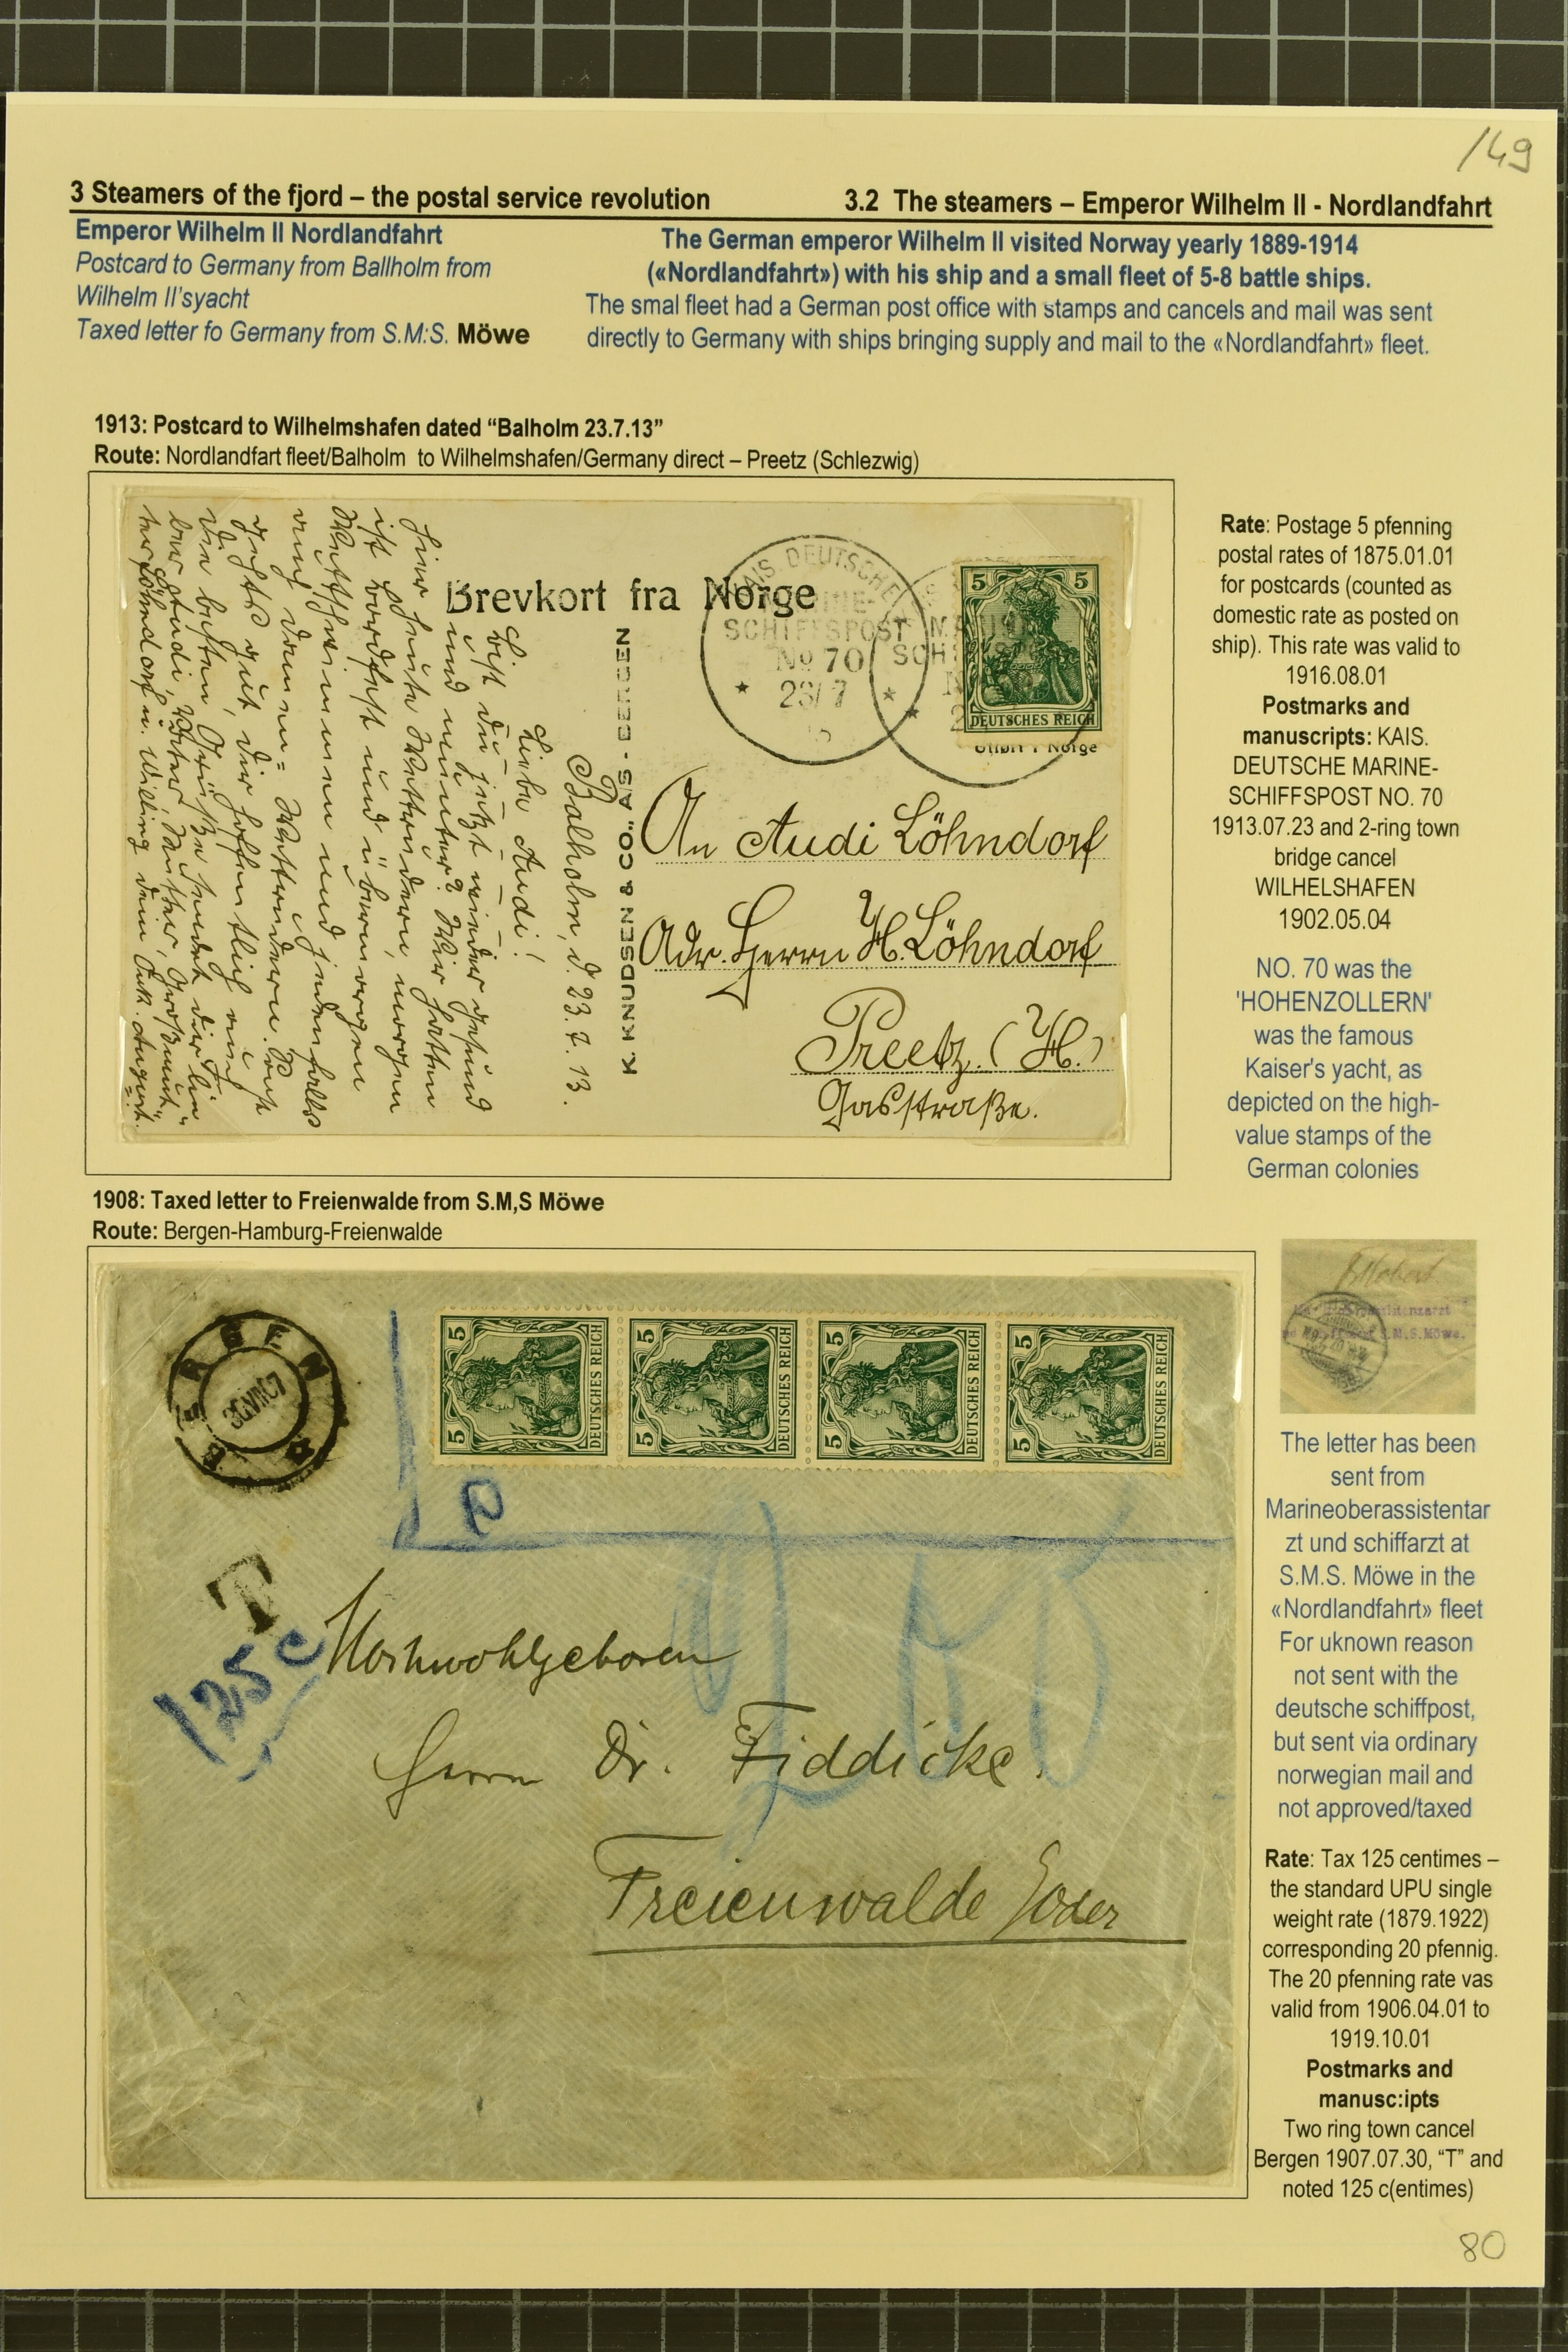 149
3 Steamers of the fjord – the postal service revolution
3.2 The steamers – Emperor Wilhelm II - Nordlandfahrt
Emperor Wilhelm II Nordlandfahrt
Postcard to Germany from Ballholm from
Wilhelm II'syacht
Taxed letter fo Germany from S.M:S. Möwe
The German emperor Wilhelm II visited Norway yearly 1889-1914
(«Nordlandfahrt») with his ship and a small fleet of 5-8 battle ships.
The smal fleet had a German post office with stamps and cancels and mail was sent
directly to Germany with ships bringing supply and mail to the «Nordlandfahrt» fleet.
1913: Postcard to Wilhelmshafen dated “Balholm 23.7.13”
Route: Nordlandfart fleet/Balholm to Wilhelmshafen/Germany direct – Preetz (Schlezwig)
Brevkort fra Norge
KAIS. DEUTSCHE
MARINE-
SCHIFFSPOST
No 70
23/7
5 5
DEUTSCHES REICH
K. KNUDSEN & CO., A/S - BERGEN
Balholm, d. 23.7.13.
Liebe Audi!
Bist du jetzt wieder gesund
und munter? Wir hatten
hier heute Wettrudern, morgen
An Audi Löhndorf
Adr. Herrn H. Löhndorf
Preetz. (H.)
Gasstraße.
Rate: Postage 5 pfenning
postal rates of 1875.01.01
for postcards (counted as
domestic rate as posted on
ship). This rate was valid to
1916.08.01
Postmarks and
manuscripts: KAIS.
DEUTSCHE MARINE-
SCHIFFSPOST NO. 70
1913.07.23 and 2-ring town
bridge cancel
WILHELSHAFEN
1902.05.04
NO. 70 was the
'HOHENZOLLERN'
was the famous
Kaiser's yacht, as
depicted on the high-
value stamps of the
German colonies
1908: Taxed letter to Freienwalde from S.M,S Möwe
Route: Bergen-Hamburg-Freienwalde
BERGEN
30 VII 07
5 DEUTSCHES REICH 5
5 DEUTSCHES REICH 5
5 DEUTSCHES REICH 5
5 DEUTSCHES REICH 5
T
125 c
Hochwohlgeboren
Herrn Dr. Fiddicke.
Freienwalde Oder
S.M.S. Möwe.
The letter has been
sent from
Marineoberassistentar
zt und schiffarzt at
S.M.S. Möwe in the
«Nordlandfahrt» fleet
For uknown reason
not sent with the
deutsche schiffpost,
but sent via ordinary
norwegian mail and
not approved/taxed
Rate: Tax 125 centimes –
the standard UPU single
weight rate (1879.1922)
corresponding 20 pfennig.
The 20 pfenning rate vas
valid from 1906.04.01 to
1919.10.01
Postmarks and
manusc:ipts
Two ring town cancel
Bergen 1907.07.30, “T” and
noted 125 c(entimes)
80